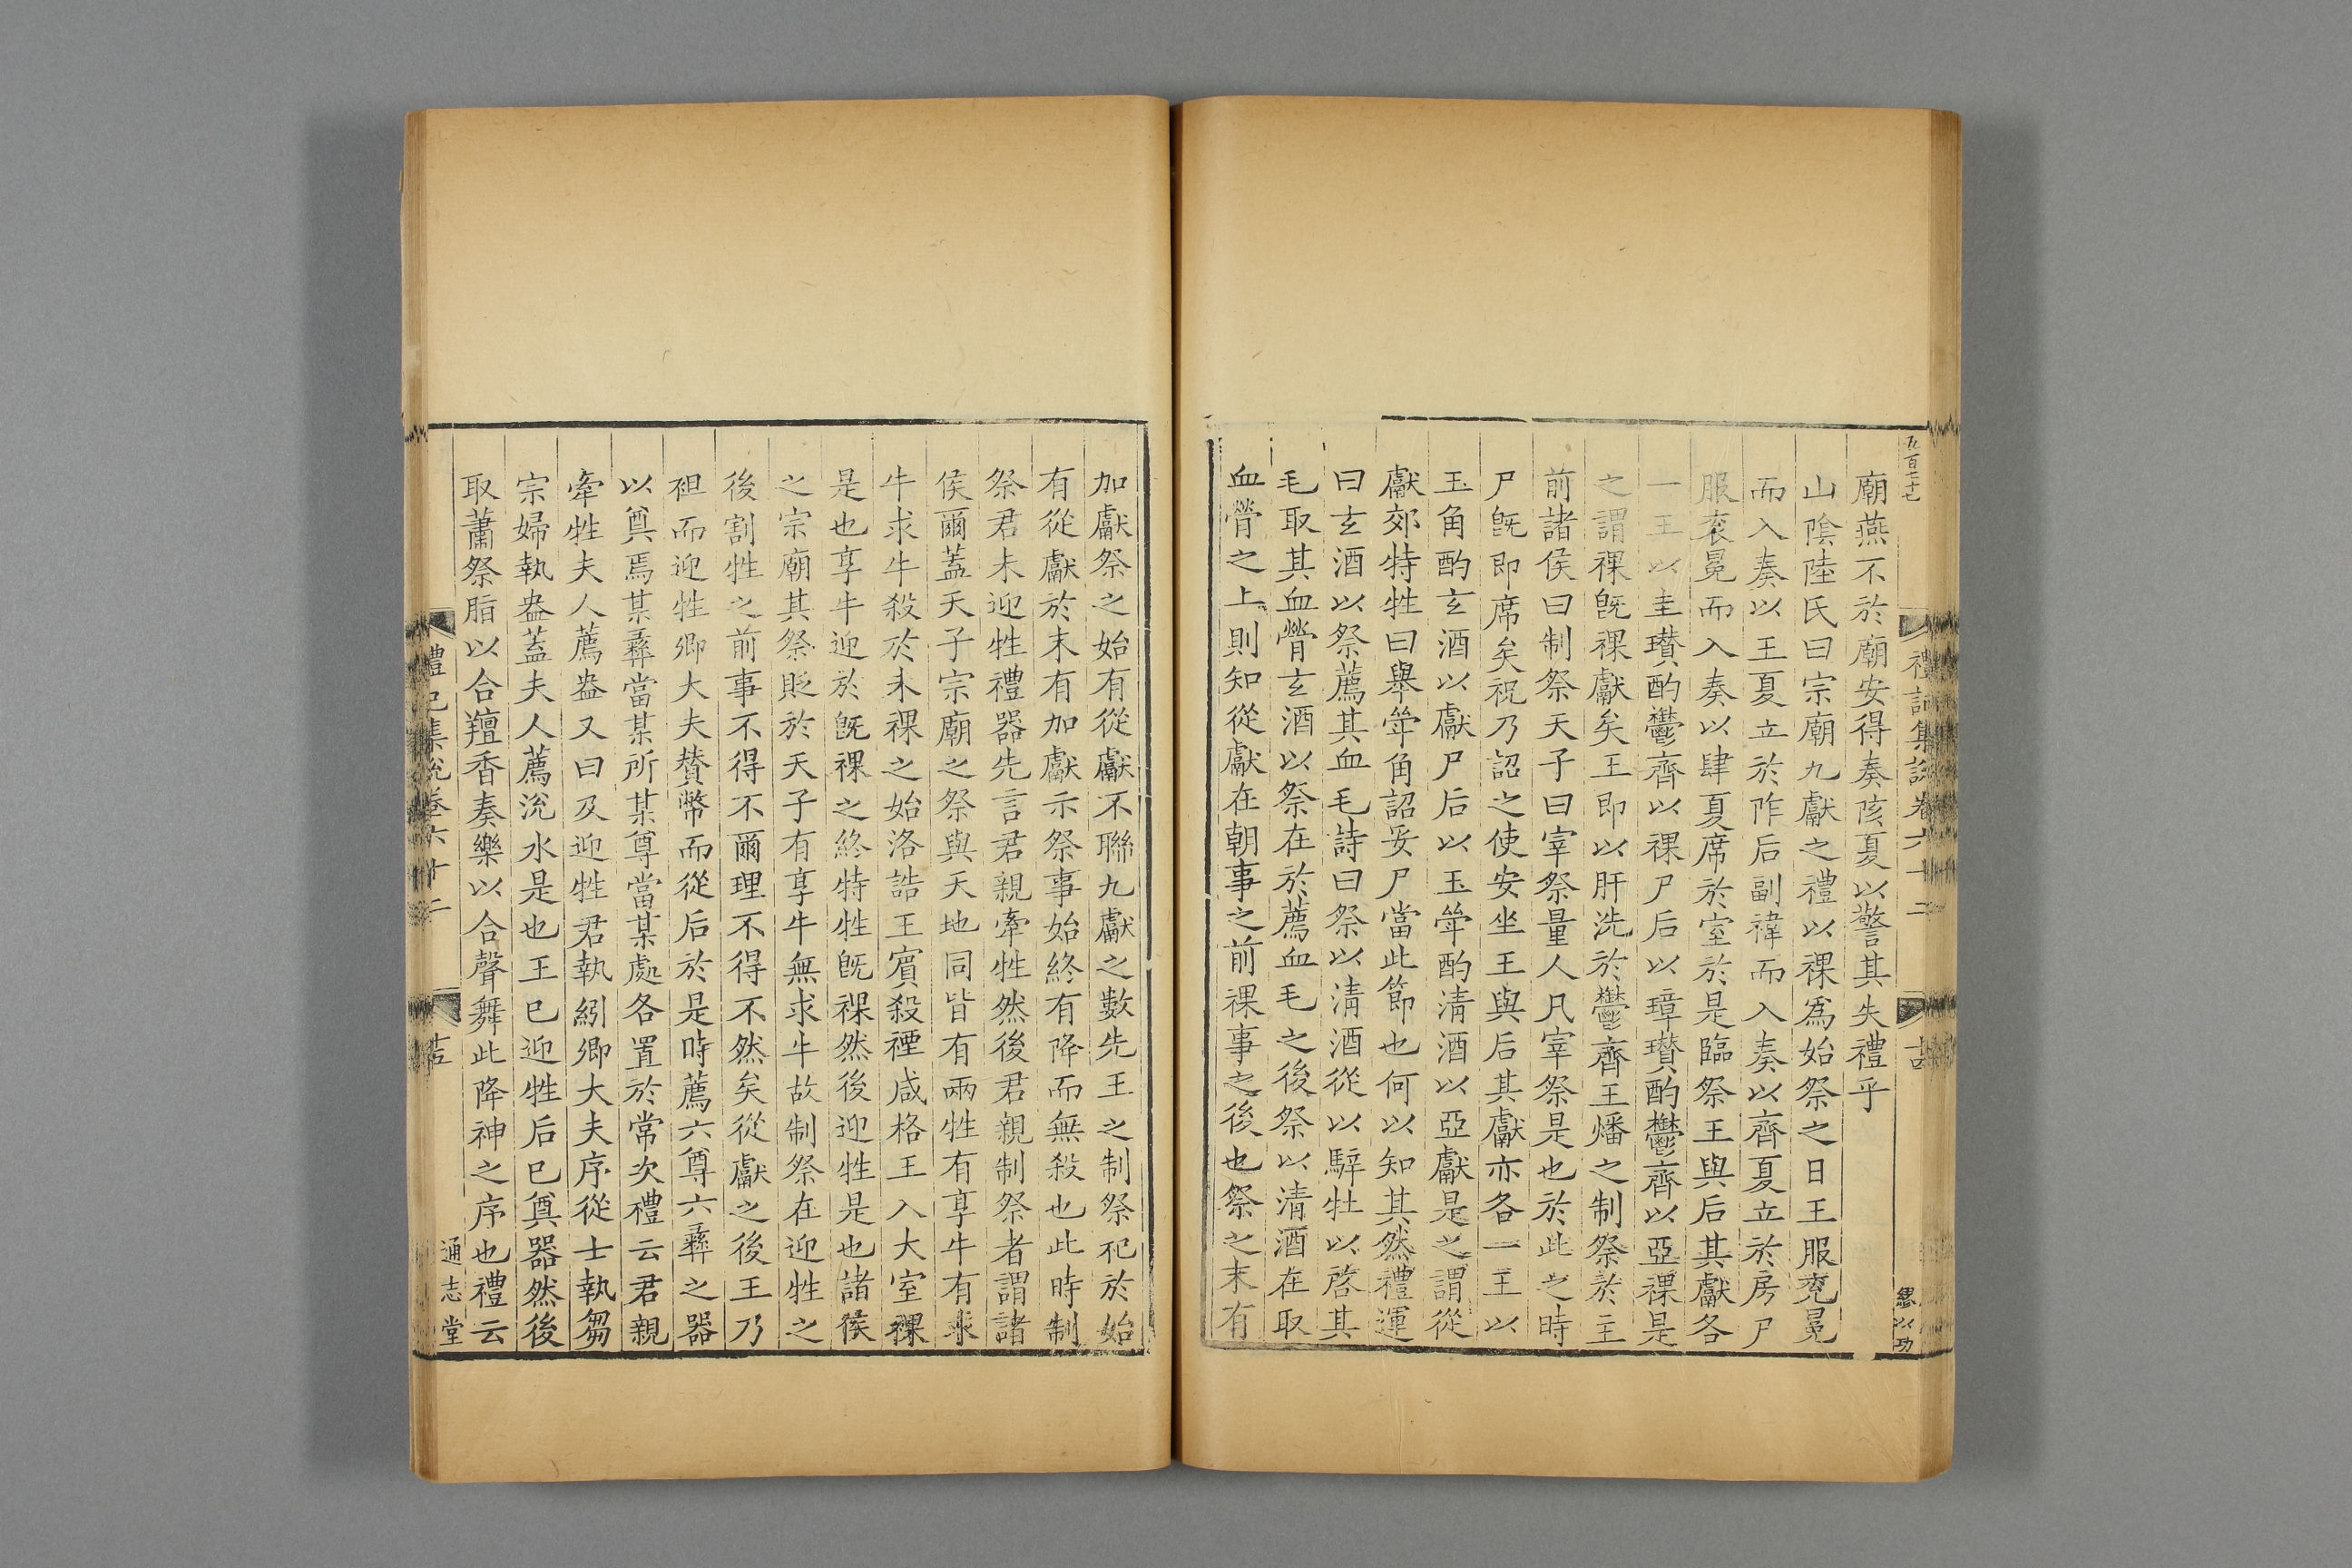 五百二十七
禮記集說卷六十二
古
廟燕不於廟安得奏陔夏以警其失禮乎
山陰陸氏曰宗廟九獻之禮以祼為始祭之日王服兖冕
而入奏以王夏立於阼后副褘而入奏以齊夏立於房尸
服衮冕而入奏以肆夏席於室於是臨祭王與后其獻各
一王以圭瓚酌鬱齊以祼尸后以璋瓚酌鬱齊以亞祼是
之謂祼旣祼獻矣王即以肝洗於鬱齊王燔之制祭於主
前諸侯曰制祭天子曰宰祭量人凡宰祭是也於此之時
尸旣即席矣祝乃詔之使安坐王與后其獻亦各一王以
玉角酌玄酒以獻尸后以玉斝酌清酒以亞獻是之謂從
獻郊特牲曰舉斝角詔妥尸當此節也何以知其然禮運
曰玄酒以祭薦其血毛詩曰祭以清酒從以騂牡以啓其
毛取其血膋玄酒以祭在於薦血毛之後祭以清酒在取
血膋之上則知從獻在朝事之前祼事之後也祭之末有
加獻祭之始有從獻不聯九獻之數先王之制祭祀於始
有從獻於末有加獻示祭事始終有降而無殺也此時制
祭君未迎牲禮器先言君親牽牲然後君親制祭者謂諸
侯爾蓋天子宗廟之祭與天地同皆有兩牲有享牛有求
牛求牛殺於未祼之始洛誥王賓殺禋咸格王入大室祼
是也享牛迎於旣祼之終特牲旣祼然後迎牲是也諸侯
之宗廟其祭貶於天子有享牛無求牛故制祭在迎牲之
後割牲之前事不得不爾理不得不然矣從獻之後王乃
袒而迎牲卿大夫贊幣而從后於是時薦六尊六彝之器
以奠焉某彝當某所某尊當某處各置於常次禮云君親
牽牲夫人薦盎又曰及迎牲君執紖卿大夫序從士執芻
宗婦執盎蓋夫人薦涚水是也王巳迎牲后巳奠器然後
取蕭祭脂以合羶香奏樂以合聲舞此降神之序也禮云
禮記集說卷六十二
通志堂